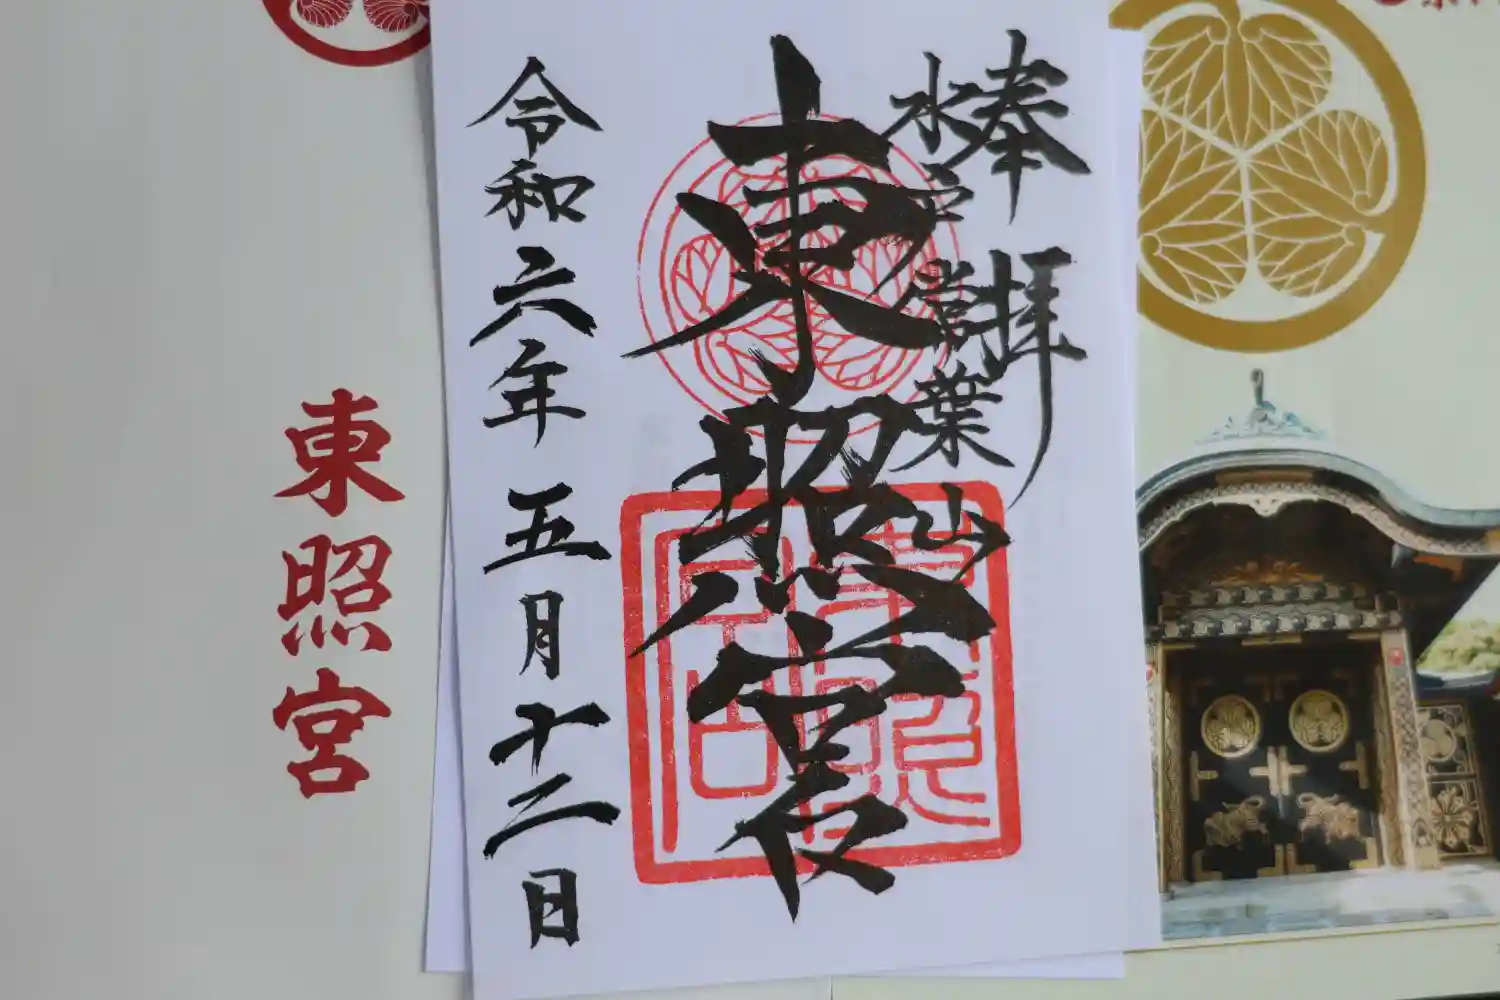 奉拝
水戸常葉山
東照宮
令和六年五月十二日
東照宮